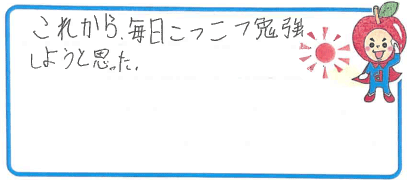 これから、毎日こつこつ勉強
しようと思った。